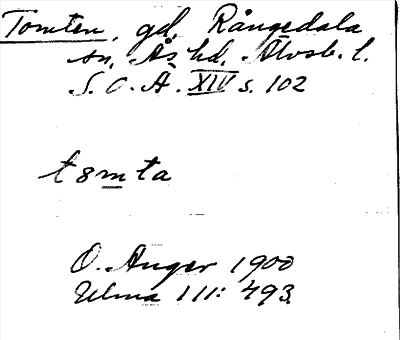 Tomten, gd, Rångedala
sn, Ås hd, Älvsb. l.
S. O. A. XIV s. 102
t8mta
O. Anger 1900
Ulma 111: 493